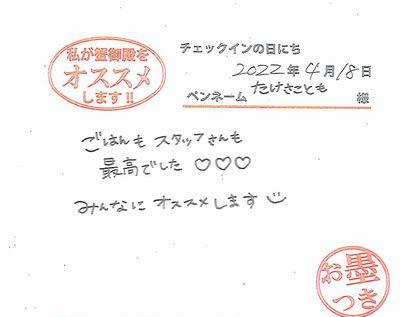 私が蟹御殿を
オススメ
します!!
チェックインの日にち
2022年4月18日
ペンネーム たけさことも 様
ごはんも スタッフさんも
最高でした ♡♡♡
みんなに オススメします☺
お墨
つき